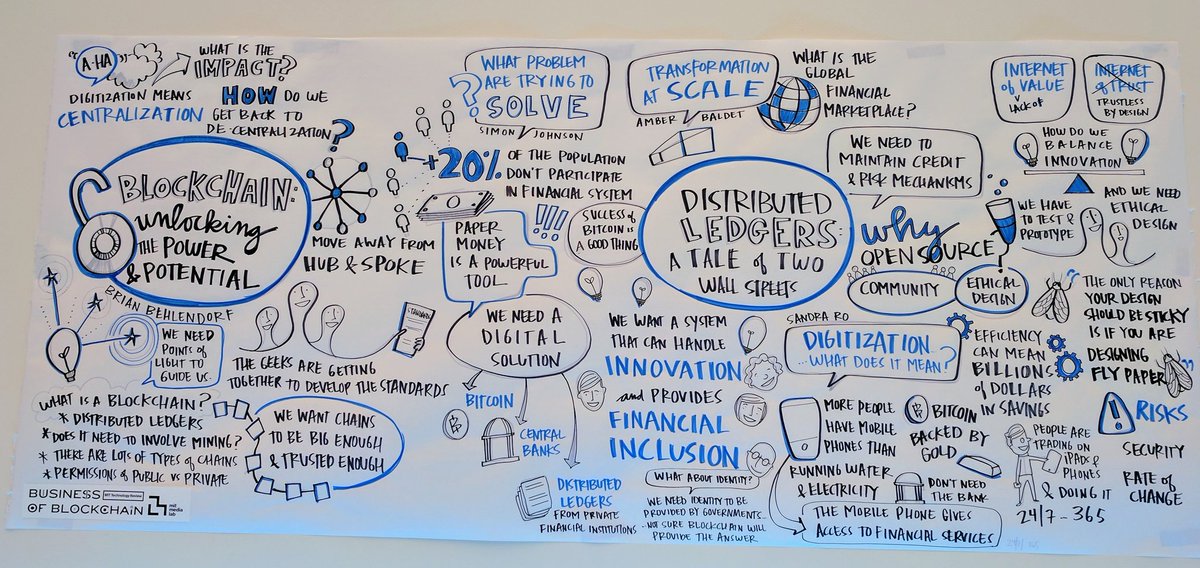 "A-HA"
WHAT IS THE
IMPACT?
DIGITIZATION MEANS
CENTRALIZATION
HOW DO WE
GET BACK TO
DE-CENTRALIZATION?
?
BLOCKCHAIN:
unlocking
THE POWER
& POTENTIAL
BRIAN BEHLENDORF
MOVE AWAY FROM
HUB & SPOKE
WE NEED
POINTS of
LIGHT TO
GUIDE US.
STANDARDS
THE GEEKS ARE GETTING
TOGETHER TO DEVELOP THE STANDARDS
WHAT IS A BLOCKCHAIN?
* DISTRIBUTED LEDGERS
* DOES IT NEED TO INVOLVE MINING?
* THERE ARE LOTS OF TYPES OF CHAINS
* PERMISSIONS OF PUBLIC VS PRIVATE
WE WANT CHAINS
TO BE BIG ENOUGH
& TRUSTED ENOUGH
BUSINESS
MIT Technology Review
OF BLOCKCHAIN
mit
media
lab
WHAT PROBLEM
? ARE TRYING TO
SOLVE
SIMON JOHNSON
+20% OF THE POPULATION
DON'T PARTICIPATE
IN FINANCIAL SYSTEM
PAPER
MONEY
IS A POWERFUL
TOOL
!!!
SUCCESS of
BITCOIN is
A GOOD THING
WE NEED A
DIGITAL
SOLUTION
BITCOIN
CENTRAL
BANKS
DISTRIBUTED
LEDGERS
FROM PRIVATE
FINANCIAL INSTITUTIONS
TRANSFORMATION
AT SCALE
AMBER BALDET
WHAT IS THE
GLOBAL
FINANCIAL
MARKETPLACE?
DISTRIBUTED
LEDGERS:
A TALE of TWO
WALL STREETS
WE NEED TO
MAINTAIN CREDIT
& RISK MECHANISMS
why
OPEN SOURCE
COMMUNITY
ETHICAL
DESIGN
?
WE WANT A SYSTEM
THAT CAN HANDLE
INNOVATION
and PROVIDES
FINANCIAL
INCLUSION
WHAT ABOUT IDENTITY?
WE NEED IDENTITY TO BE
PROVIDED BY GOVERNMENTS...
- NOT SURE BLOCKCHAIN WILL
PROVIDE THE ANSWER
SANDRA RO
DIGITIZATION...
...WHAT DOES IT MEAN?
MORE PEOPLE
HAVE MOBILE
PHONES THAN
RUNNING WATER
& ELECTRICITY
BITCOIN
BACKED BY
GOLD
DON'T NEED
THE BANK
THE MOBILE PHONE GIVES
ACCESS TO FINANCIAL SERVICES
INTERNET
of VALUE
LACK of
INTERNET
of TRUST
TRUSTLESS
BY DESIGN
HOW DO WE
BALANCE
INNOVATION
WE HAVE
TO TEST &
PROTOTYPE
AND WE NEED
ETHICAL
DESIGN
"THE ONLY REASON
YOUR DESIGN
SHOULD BE STICKY
IS IF YOU ARE
DESIGNING
FLY PAPER"
EFFICIENCY
CAN MEAN
BILLIONS
of DOLLARS
IN SAVINGS
PEOPLE ARE
TRADING ON
IPADS &
PHONES
& DOING IT
24/7 - 365
! RISKS
SECURITY
RATE OF
CHANGE